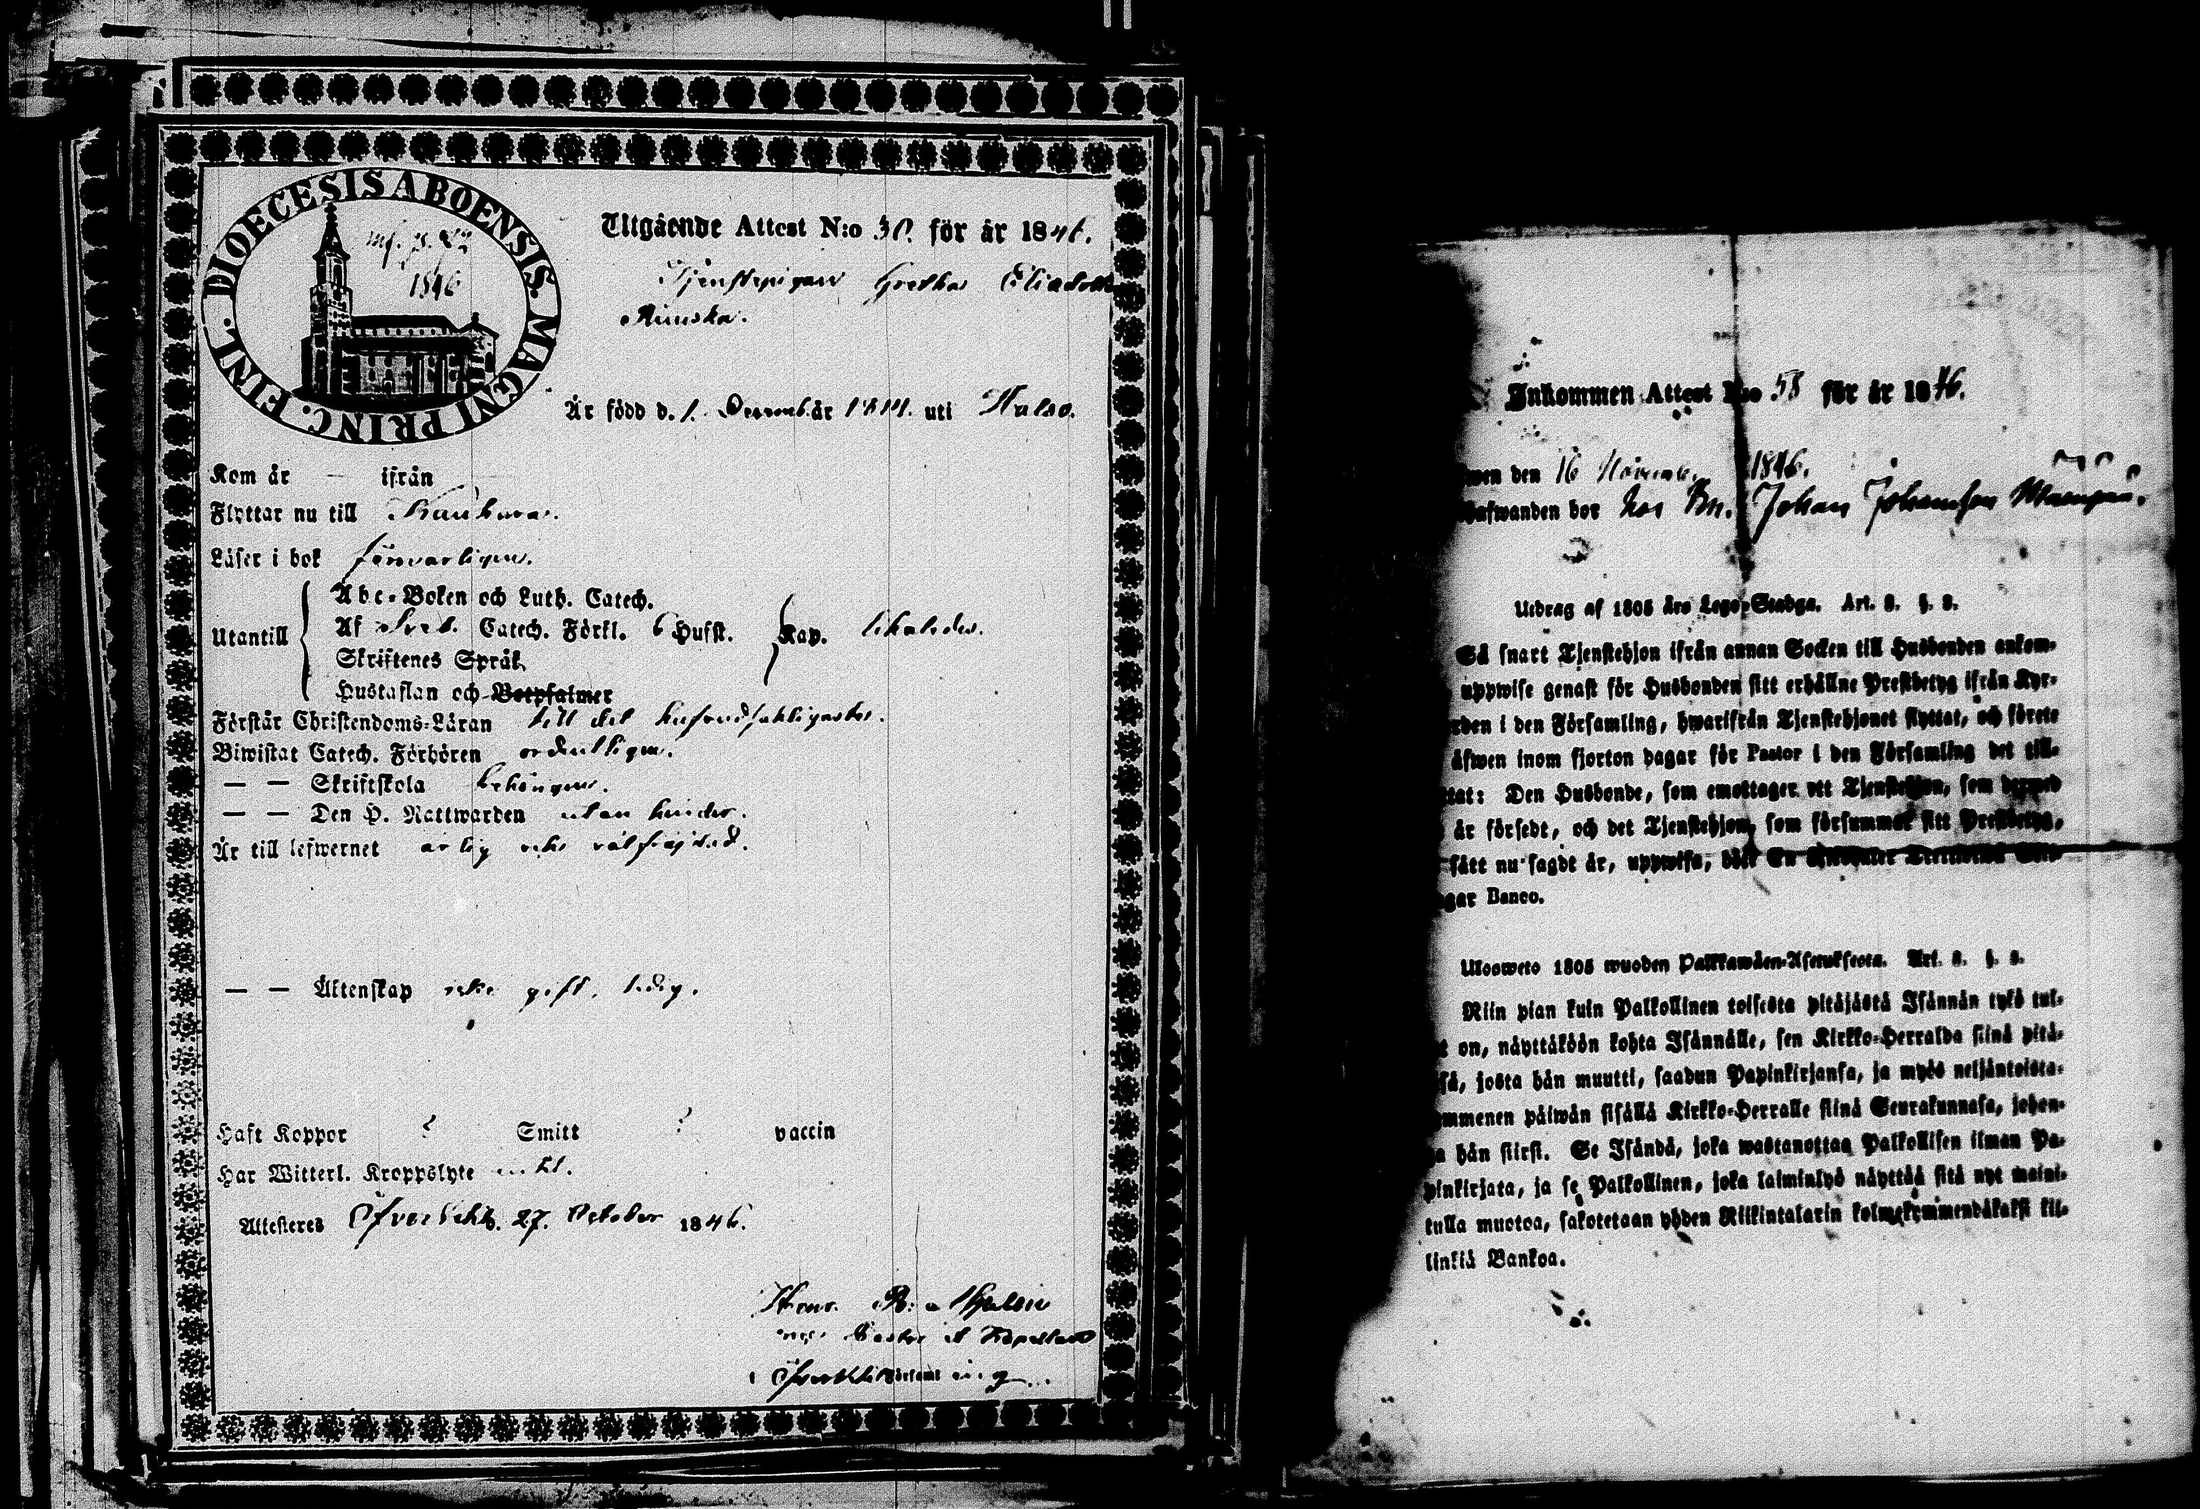 DIOECESIS ABOENSIS. MAGNI PRINC. FINL.
1846
Utgående Attest N:o 30. för år 1846.
Tjenstepigan Gretha Elisabeth
Är född d. 1. Decemb. år 1821. uti Halso.
Kom år — ifrån
Flyttar nu till
Läser i bok försvarligen.
Utantill
Abc-Boken och Luth. Catech.
Af Sveb. Catech. Förkl. 6 Hufst.
Skriftenes Språk
Hustaflan och Botpsalmer
Kap. likaledes.
Förstår Christendoms-Läran till det hufvudsakligaste.
Biwistat Catech. Förhören ordentligen.
— — Skriftskola behörigen.
— — Den H. Nattwarden utan hinder.
Är till lefwernet ärlig och välfräjdad.
— — Äktenskap icke gift, ledig.
Haft Koppor ? Smitt ? vaccin
Har Witterl. Kroppslyte intet.
Attesteras 27. October 1846.
Pastor & Kapellan
Inkommen Attest N:o 58 för år 1846.
wen den 16 November 1846.
hafwanden bor hos Bn. Johan Johansson
Utdrag af 1805 års Lego-Stadga. Art. 2. §. 2.
Så snart Tjenstehjon ifrån annan Socken till Husbonden ankom-
uppwise genast för Husbonden sitt erhållne Prestbetyg ifrån Kyr-
rden i den Församling, hwarifrån Tjenstehjonet flyttat, och förete
äfwen inom fjorton dagar för Pastor i den Församling det till-
tat: Den Husbonde, som emottager ett Tjenstehjon, som dermed
är försedt, och det Tjenstehjon, som försummar sitt Prestbetyg,
sätt nu sagdt är, uppwisa, böte En
gar Banco.
Uloswetо 1805 wuoden Palkkawäen-Asetuksesta. Art. 2. §. 2.
Niin pian kuin Palkollinen toisesta pitäjästä Isännän tykö tul-
t on, näyttäköön kohta Isännälle, sen Kirkko-Herralda siinä pitä-
sä, josta hän muutti, saadun Papinkirjansa, ja myös neljäntoista-
ymmenen päiwän sisällä Kirkko-Herralle siinä Seurakunnasa, johon-
a hän siirsi. Se Isändä, joka wastanottaa Palkollisen ilman Pa-
pinkirjata, ja se Palkollinen, joka laiminlyö näyttää sitä nyt maini-
tulla muotoa, sakotetaan yhden Riikintalarin kolmekymmendäkaksi kil-
linkiä Bankoa.